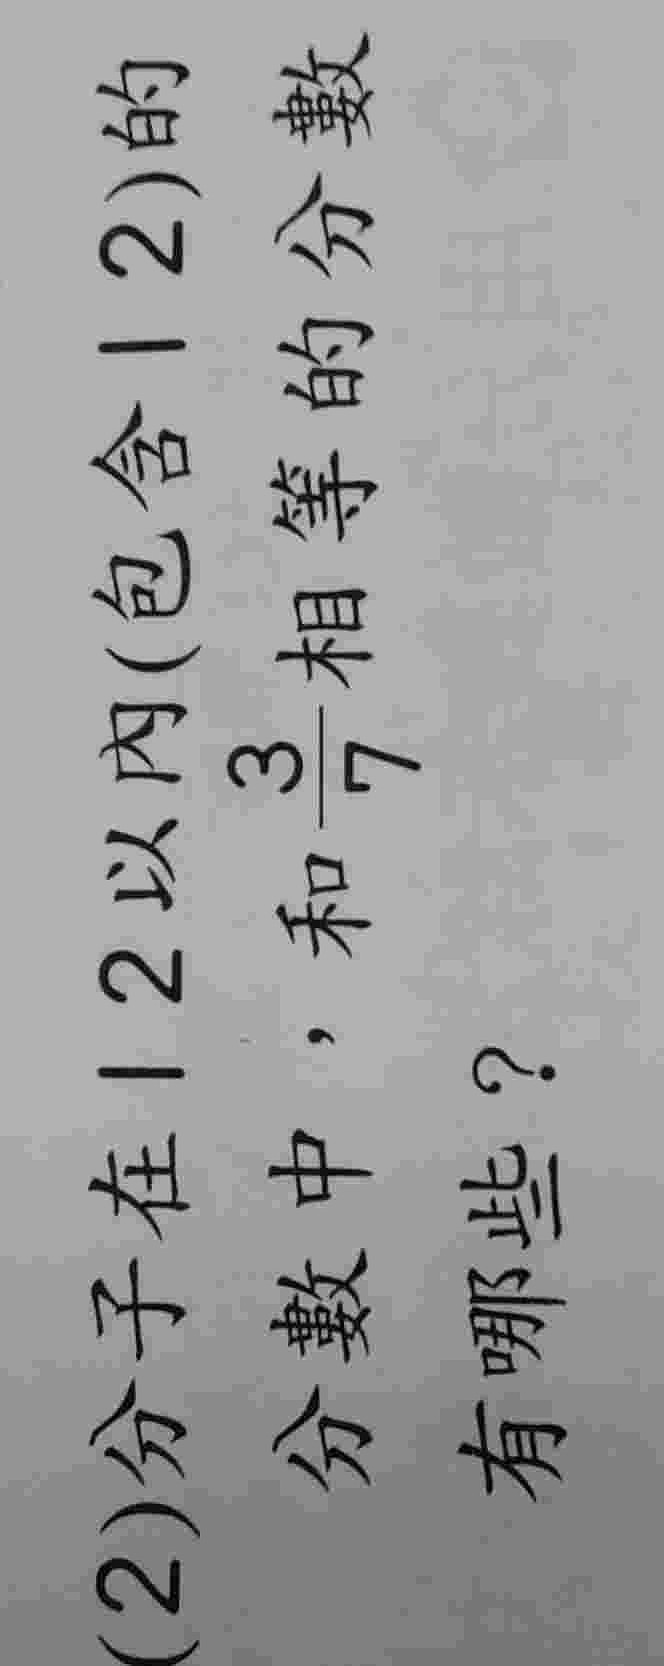 (2)分子在12以內(包含12)的
分數中，和3/7相等的分數
有哪些？